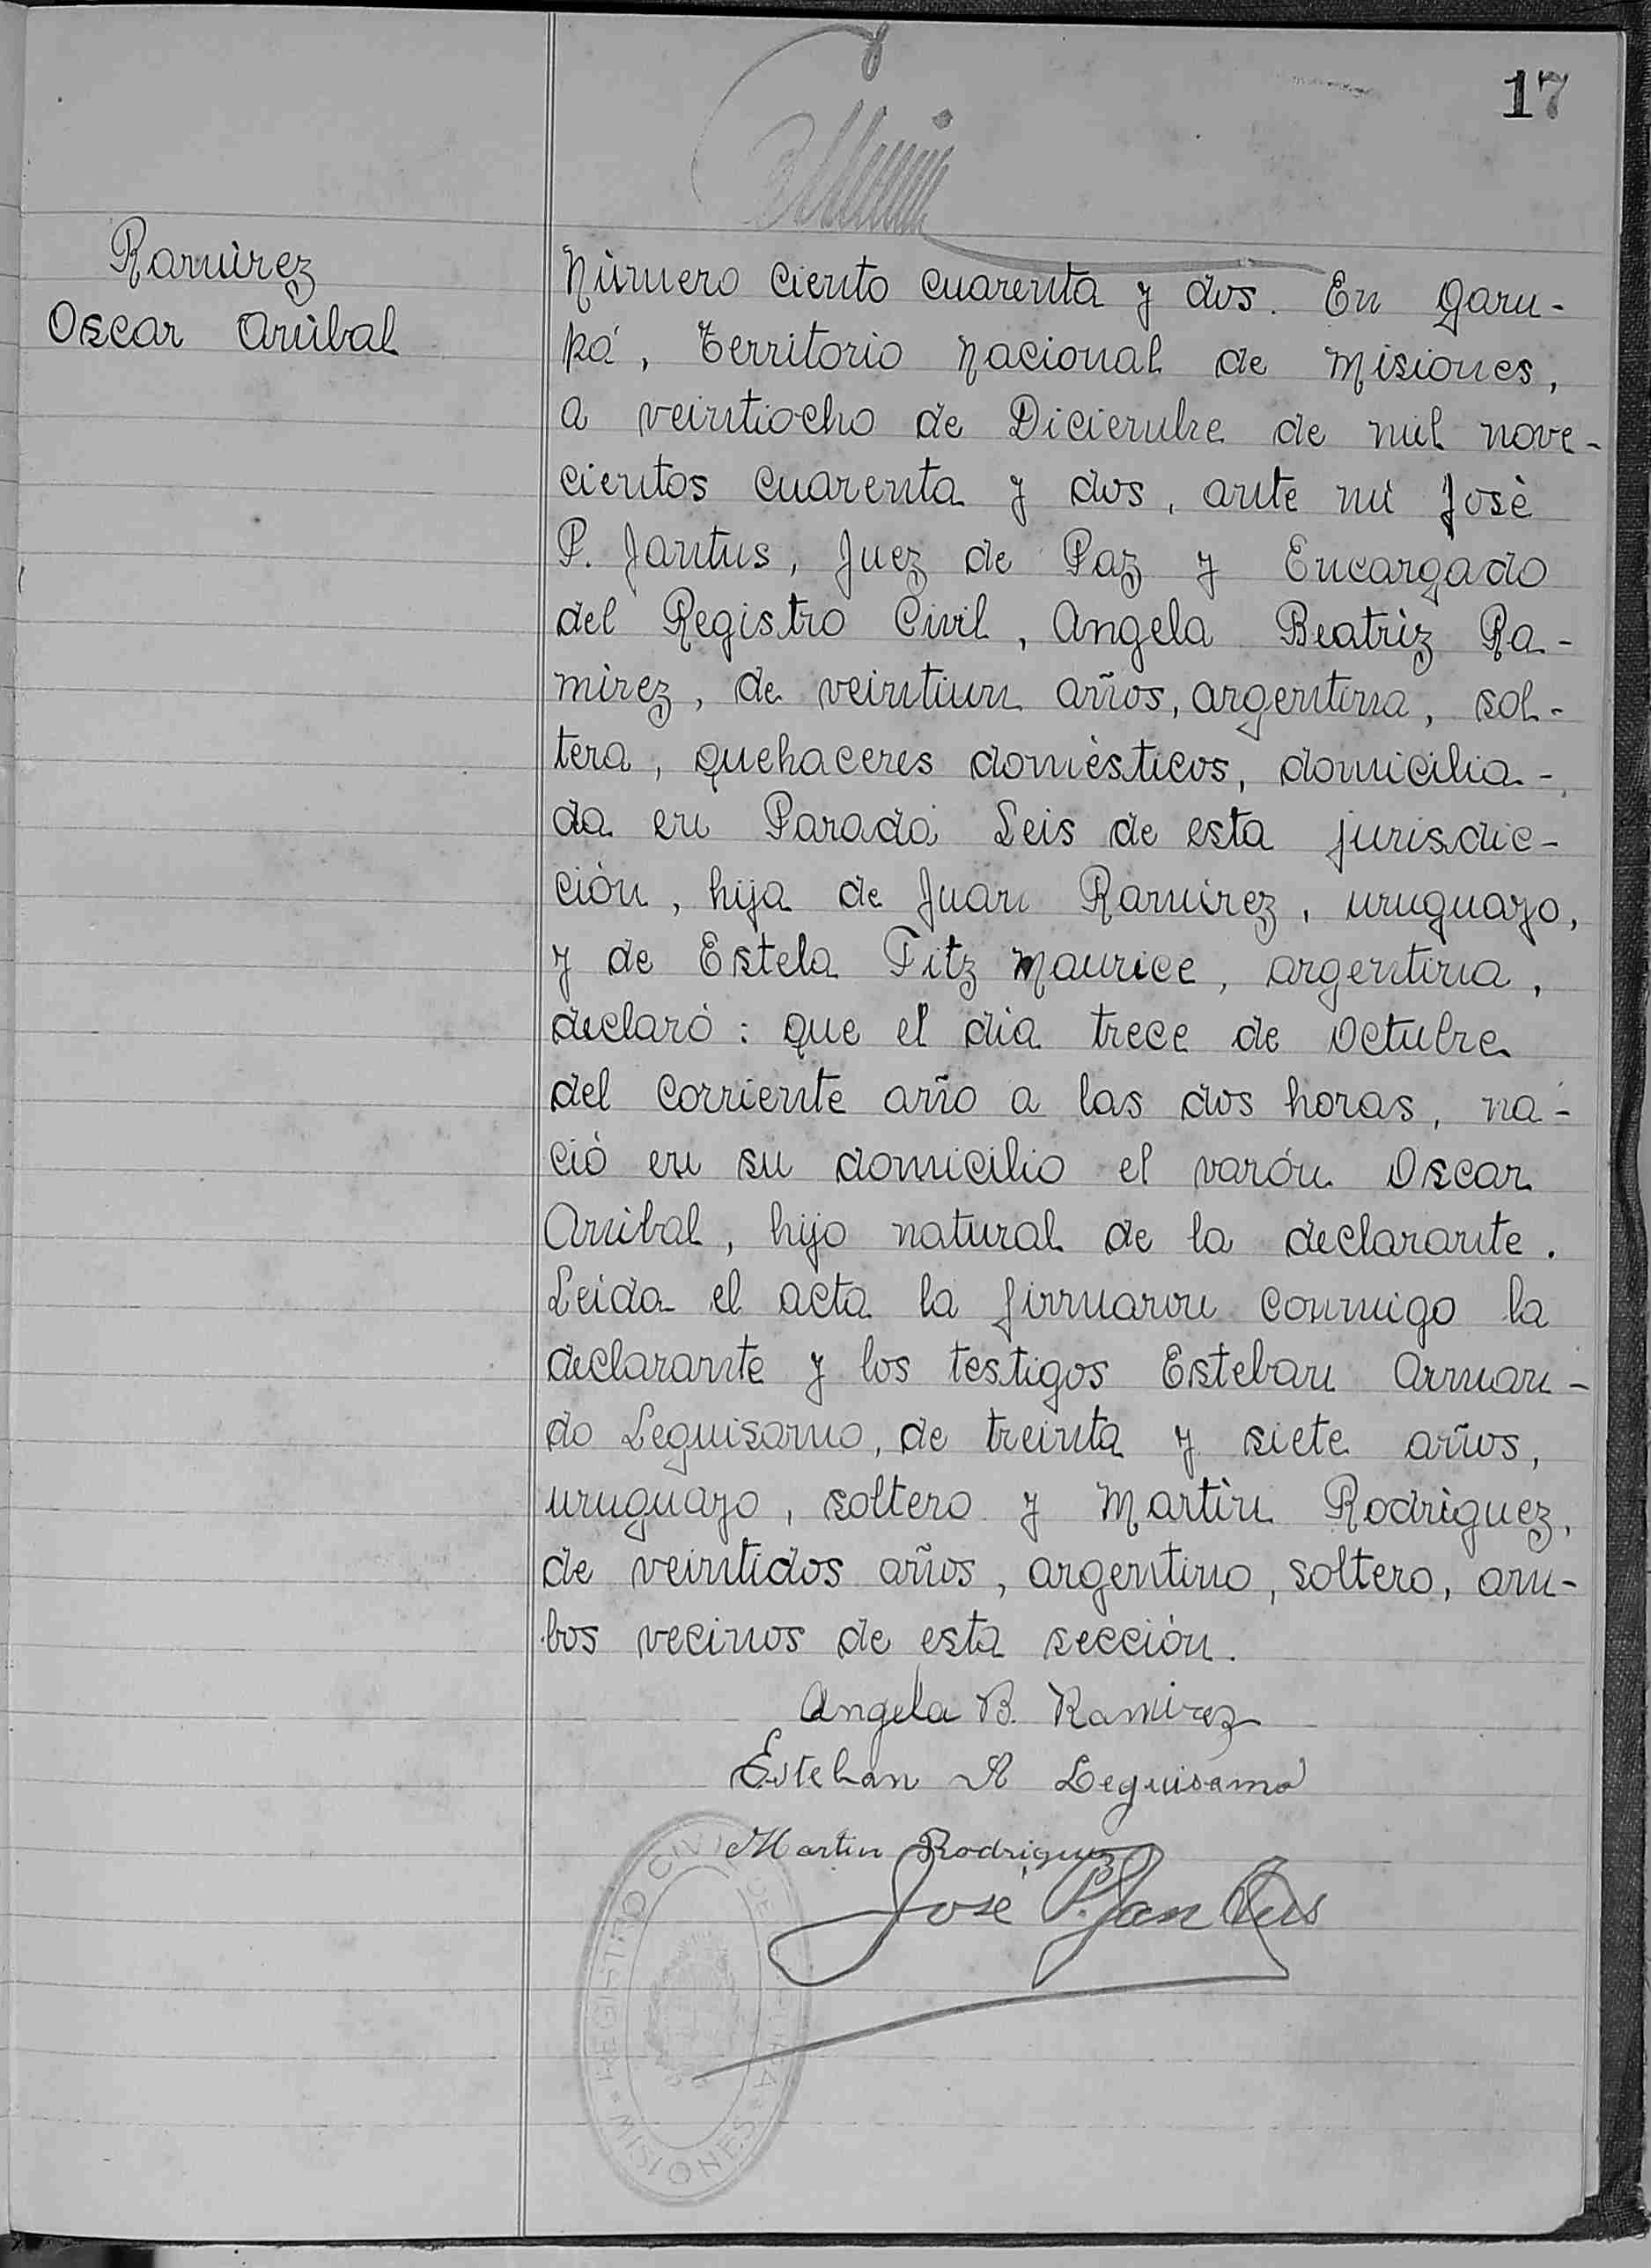 17
Ramìrez
Oscar Anìbal
Nùmero ciento cuarenta y dos. En Garu-
pá, Territorio Nacional de Misiones,
a veintiocho de Diciembre de mil nove-
cientos cuarenta y dos, ante mì Josè
P. Jantus, Juez de Paz y Encargado
del Registro Civil, Angela Beatrìz Ra-
mìrez, de veintiun años, argentina, sol-
tera, quehaceres domèsticos, domicilia-
da en Parada Leis de esta jurisdic-
ciòn, hija de Juan Ramìrez, uruguayo,
y de Estela Fitz Maurice, argentina,
declaró: que el dìa trece de Octubre
del corriente año a las dos horas, na-
ciò en su domicilio el varón Oscar
Anìbal, hijo natural de la declarante.
Leida el acta la firmaron conmigo la
declarante y los testigos Esteban Arman-
do Leguisamo, de treinta y siete años,
uruguayo, soltero y Martìn Rodrìguez,
de veintidos años, argentino, soltero, am-
bos vecinos de esta secciòn.
Angela B. Ramirez
Esteban A Leguisamo
Martin Rodriguez
José P. Jantus
REGISTRO CIVIL
MISIONES